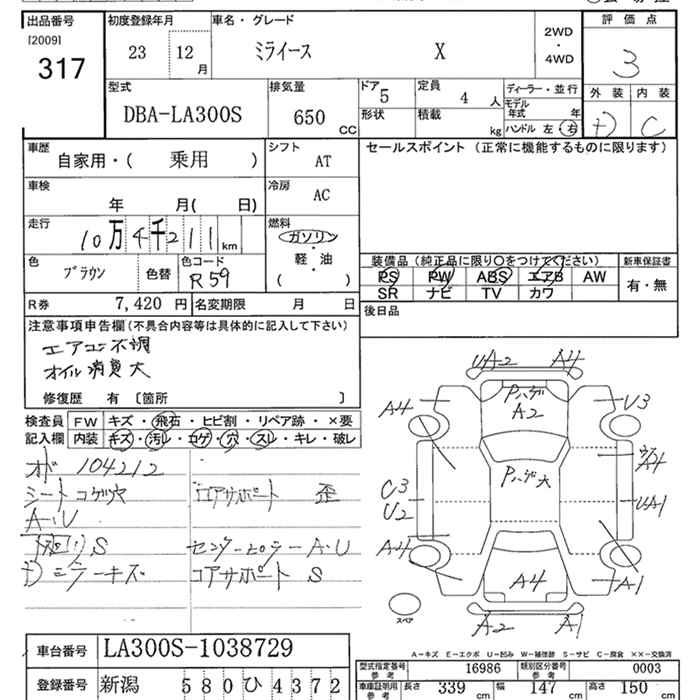 出品番号 初度登録年月 車名・グレード 評価点
[2009] 317 23 12月 ミライース X 2WD・4WD 3
外装 内装
D C
型式 排気量 ドア 5 定員 4人 ディーラー・並行
DBA-LA300S 650 CC 形状 積載 kg モデル年式 年
ハンドル 左・右
車歴 自家用・( 乗用 ) シフト AT セールスポイント(正常に機能するものに限ります)
車検 年 月( 日) 冷房 AC
走行 10万4千211km 燃料 ガソリン・軽油
( )
色 ブラウン 色替 色コード R59
装備品(純正品に限り○をつけてください) 新車保証書
PS PW ABS エアB AW 有・無
SR ナビ TV カワ
R券 7,420円 名変期限 月 日 後日品
注意事項申告欄(不具合内容等は具体的に記入して下さい)
エアコン不調
オイル消費大
修復歴 有 〔箇所 〕
検査員記入欄 FW キズ・飛石・ヒビ割・リペア跡・×要
内装 キズ・汚レ・コゲ・穴・スレ・キレ・破レ
オド 104212
シートコゲツヤ コアサポート 歪
A・U
下廻りS センターピラーA・U
ミラーキズ コアサポート S
UA2 A4
A4 Pハゲ A2 U3
A4
Pハゲ大
U3 U2 UA1
A4 A4 A1
スペア A2 A1
A-キズ E-エクボ U-凹み W-補修跡 S-サビ C-腐食 ××-交換済
車台番号 LA300S-1038729
型式指定番号 参考 16986 類別区分番号 参考 0003
登録番号 新潟 580 ひ 4372
車庫証明用 参考 長さ 339cm 幅 147cm 高さ 150cm